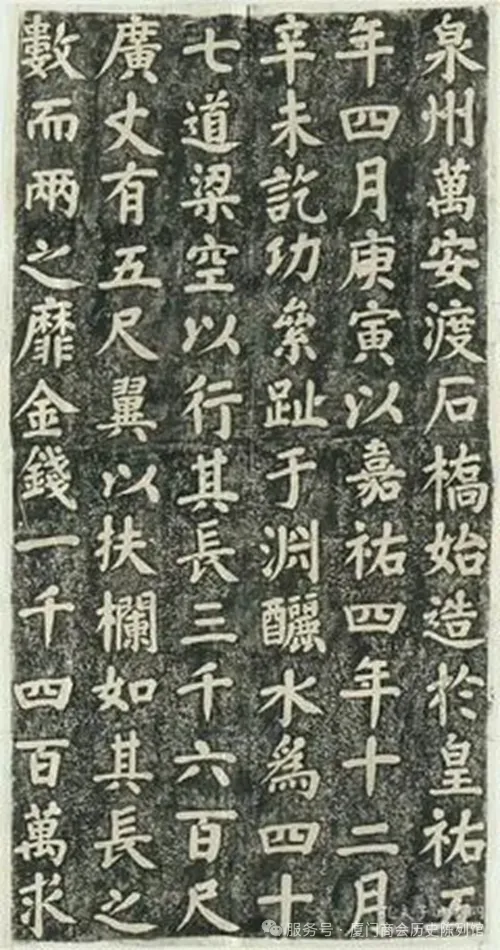 泉州萬安渡石橋始造於皇祐五
年四月庚寅以嘉祐四年十二月
辛未訖功絫趾于淵釃水為四十
七道梁空以行其長三千六百尺
廣丈有五尺翼以扶欄如其長之
數而兩之靡金錢一千四百萬求
服务号·厦门商会历史陈列馆